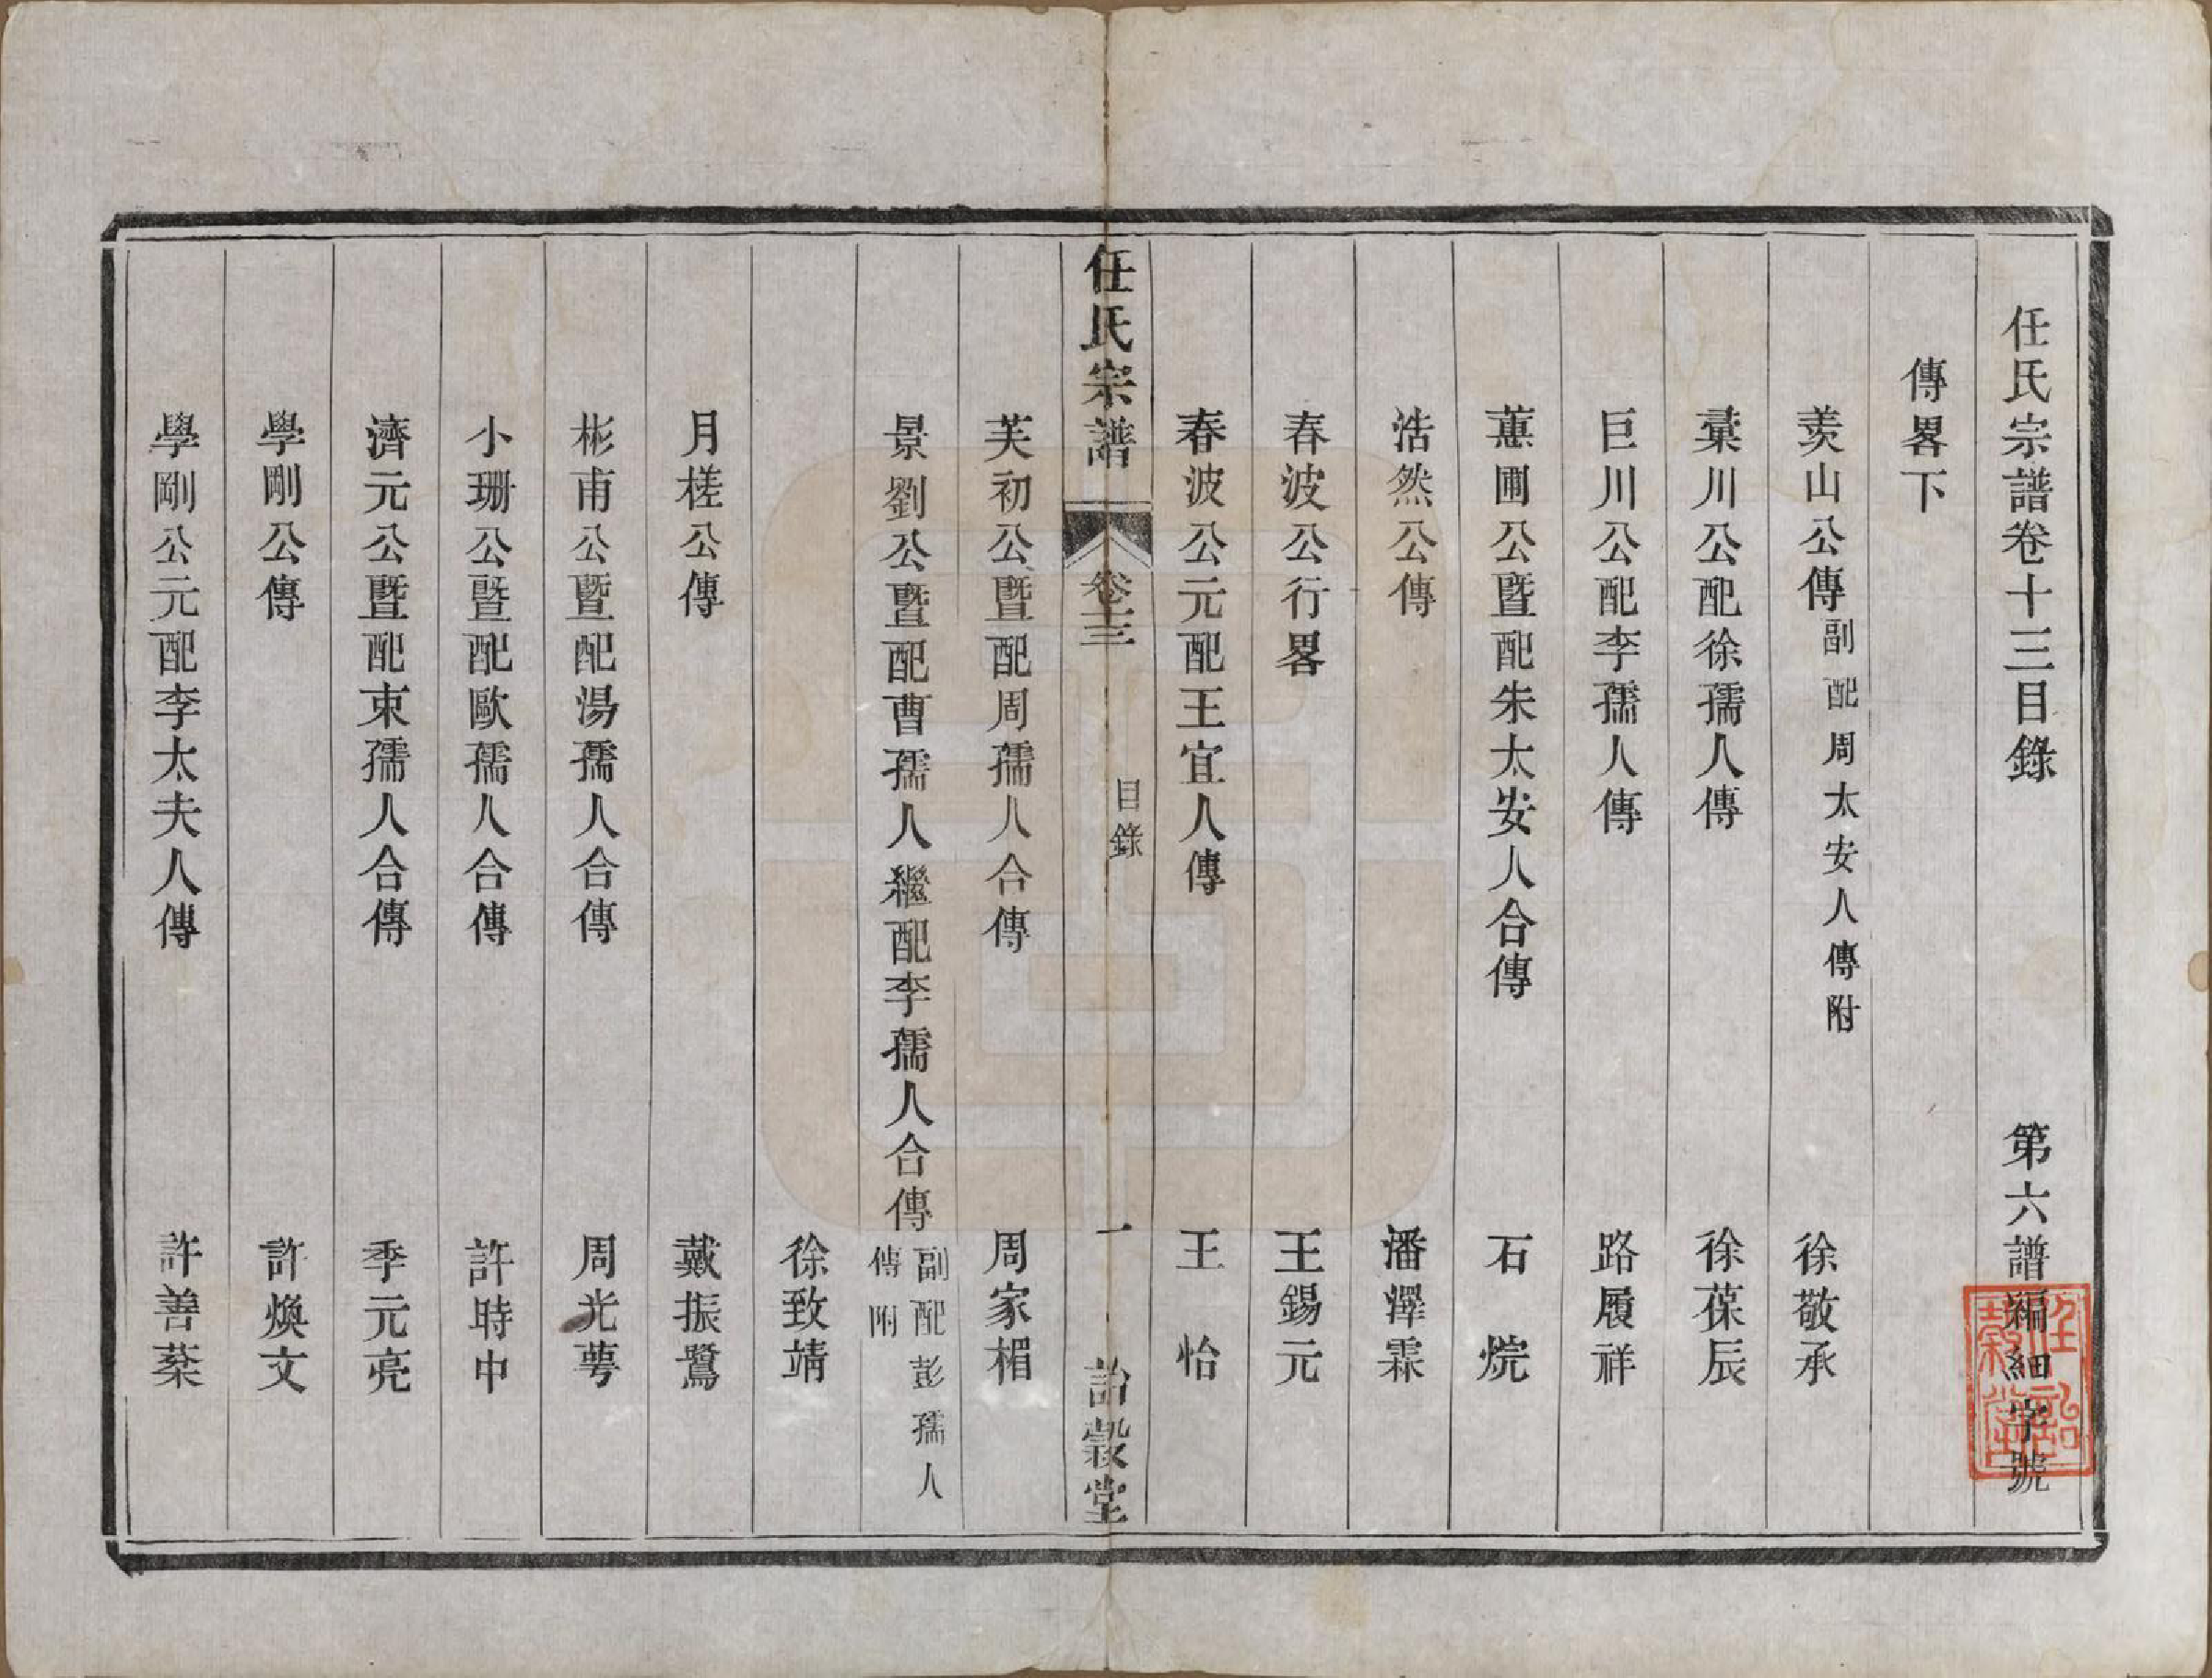 任氏宗譜卷十三目錄 第六譜編細字號
傳畧下
羨山公傳副配周太安人傳附 徐敬承
彙川公配徐孺人傳 徐葆辰
巨川公配李孺人傳 路履祥
蕙圃公暨配朱太安人合傳 石烷
浩然公傳 潘澤霖
春波公行畧 王錫元
春波公元配王宜人傳 王怡
任氏宗譜 卷十三 目錄 一 詒穀堂
芙初公暨配周孺人合傳 周家楣
景劉公暨配曹孺人繼配李孺人合傳副配彭孺人傳附
徐致靖
月槎公傳 戴振鷺
彬甫公暨配湯孺人合傳 周光萼
小珊公暨配歐孺人合傳 許時中
濟元公暨配束孺人合傳 季元亮
學剛公傳 許煥文
學剛公元配李太夫人傳 許善棻